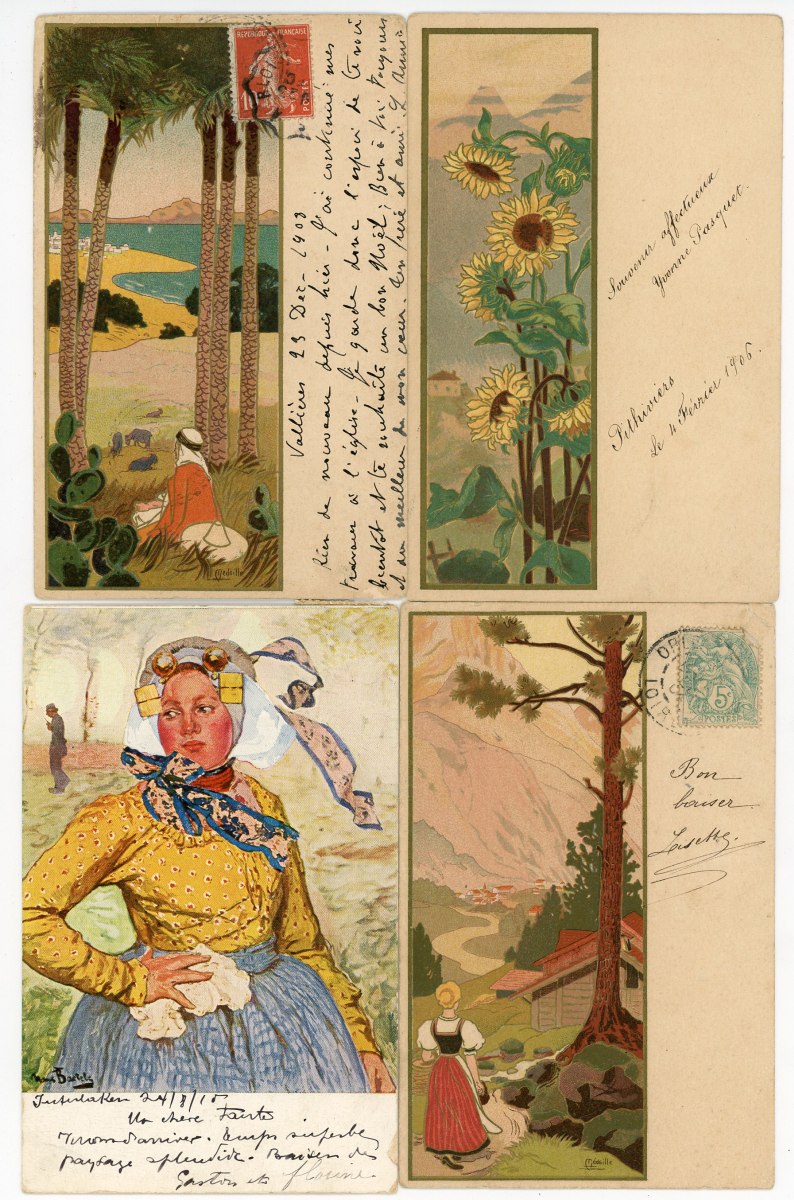 REPUBLIQUE FRANÇAISE
10
POSTES
Vallières 23 Dec - 1908
Rien de nouveau depuis hier - J'ai continué mes
travaux à l'église - Je garde donc l'espoir de te voir
bientôt et te souhaite un bon Noël; Bien à toi toujours
et du meilleur de mon cœur. Ton frère et ami.
Médaille
Souvenir affectueux
Yvonne Pasquet.
Pithiviers
Le 4 Février 1906.
Hans
Interlaken 24/8/10
Ma chère Tante
arriver. Temps superbe,
paysage splendide. Baisers de
Gaston et
5c
POSTES
Bon
baiser
Médaille